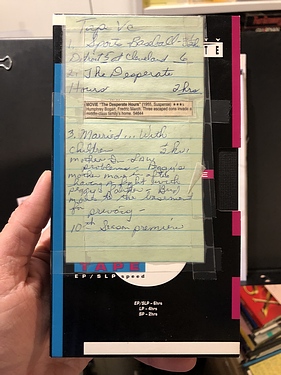 Tape V
1. Sports Baseball
Detroit at Cleveland 6
2. The Desperate
Hours 2 hrs
MOVIE "The Desperate Hours" (1955, Suspense) ★★★½
Humphrey Bogart, Fredric March. Three escaped cons invade a
middle-class family's home. 54664
3. Married... With
Children
mother In Law
problems - Peggy's
mother
having a fight with
Peggy's Father - Bud
to the basement
for
10th Season premiere
TAPE
EP/SLP speed
EP/SLP - 6hrs
LP - 4hrs
SP - 2hrs